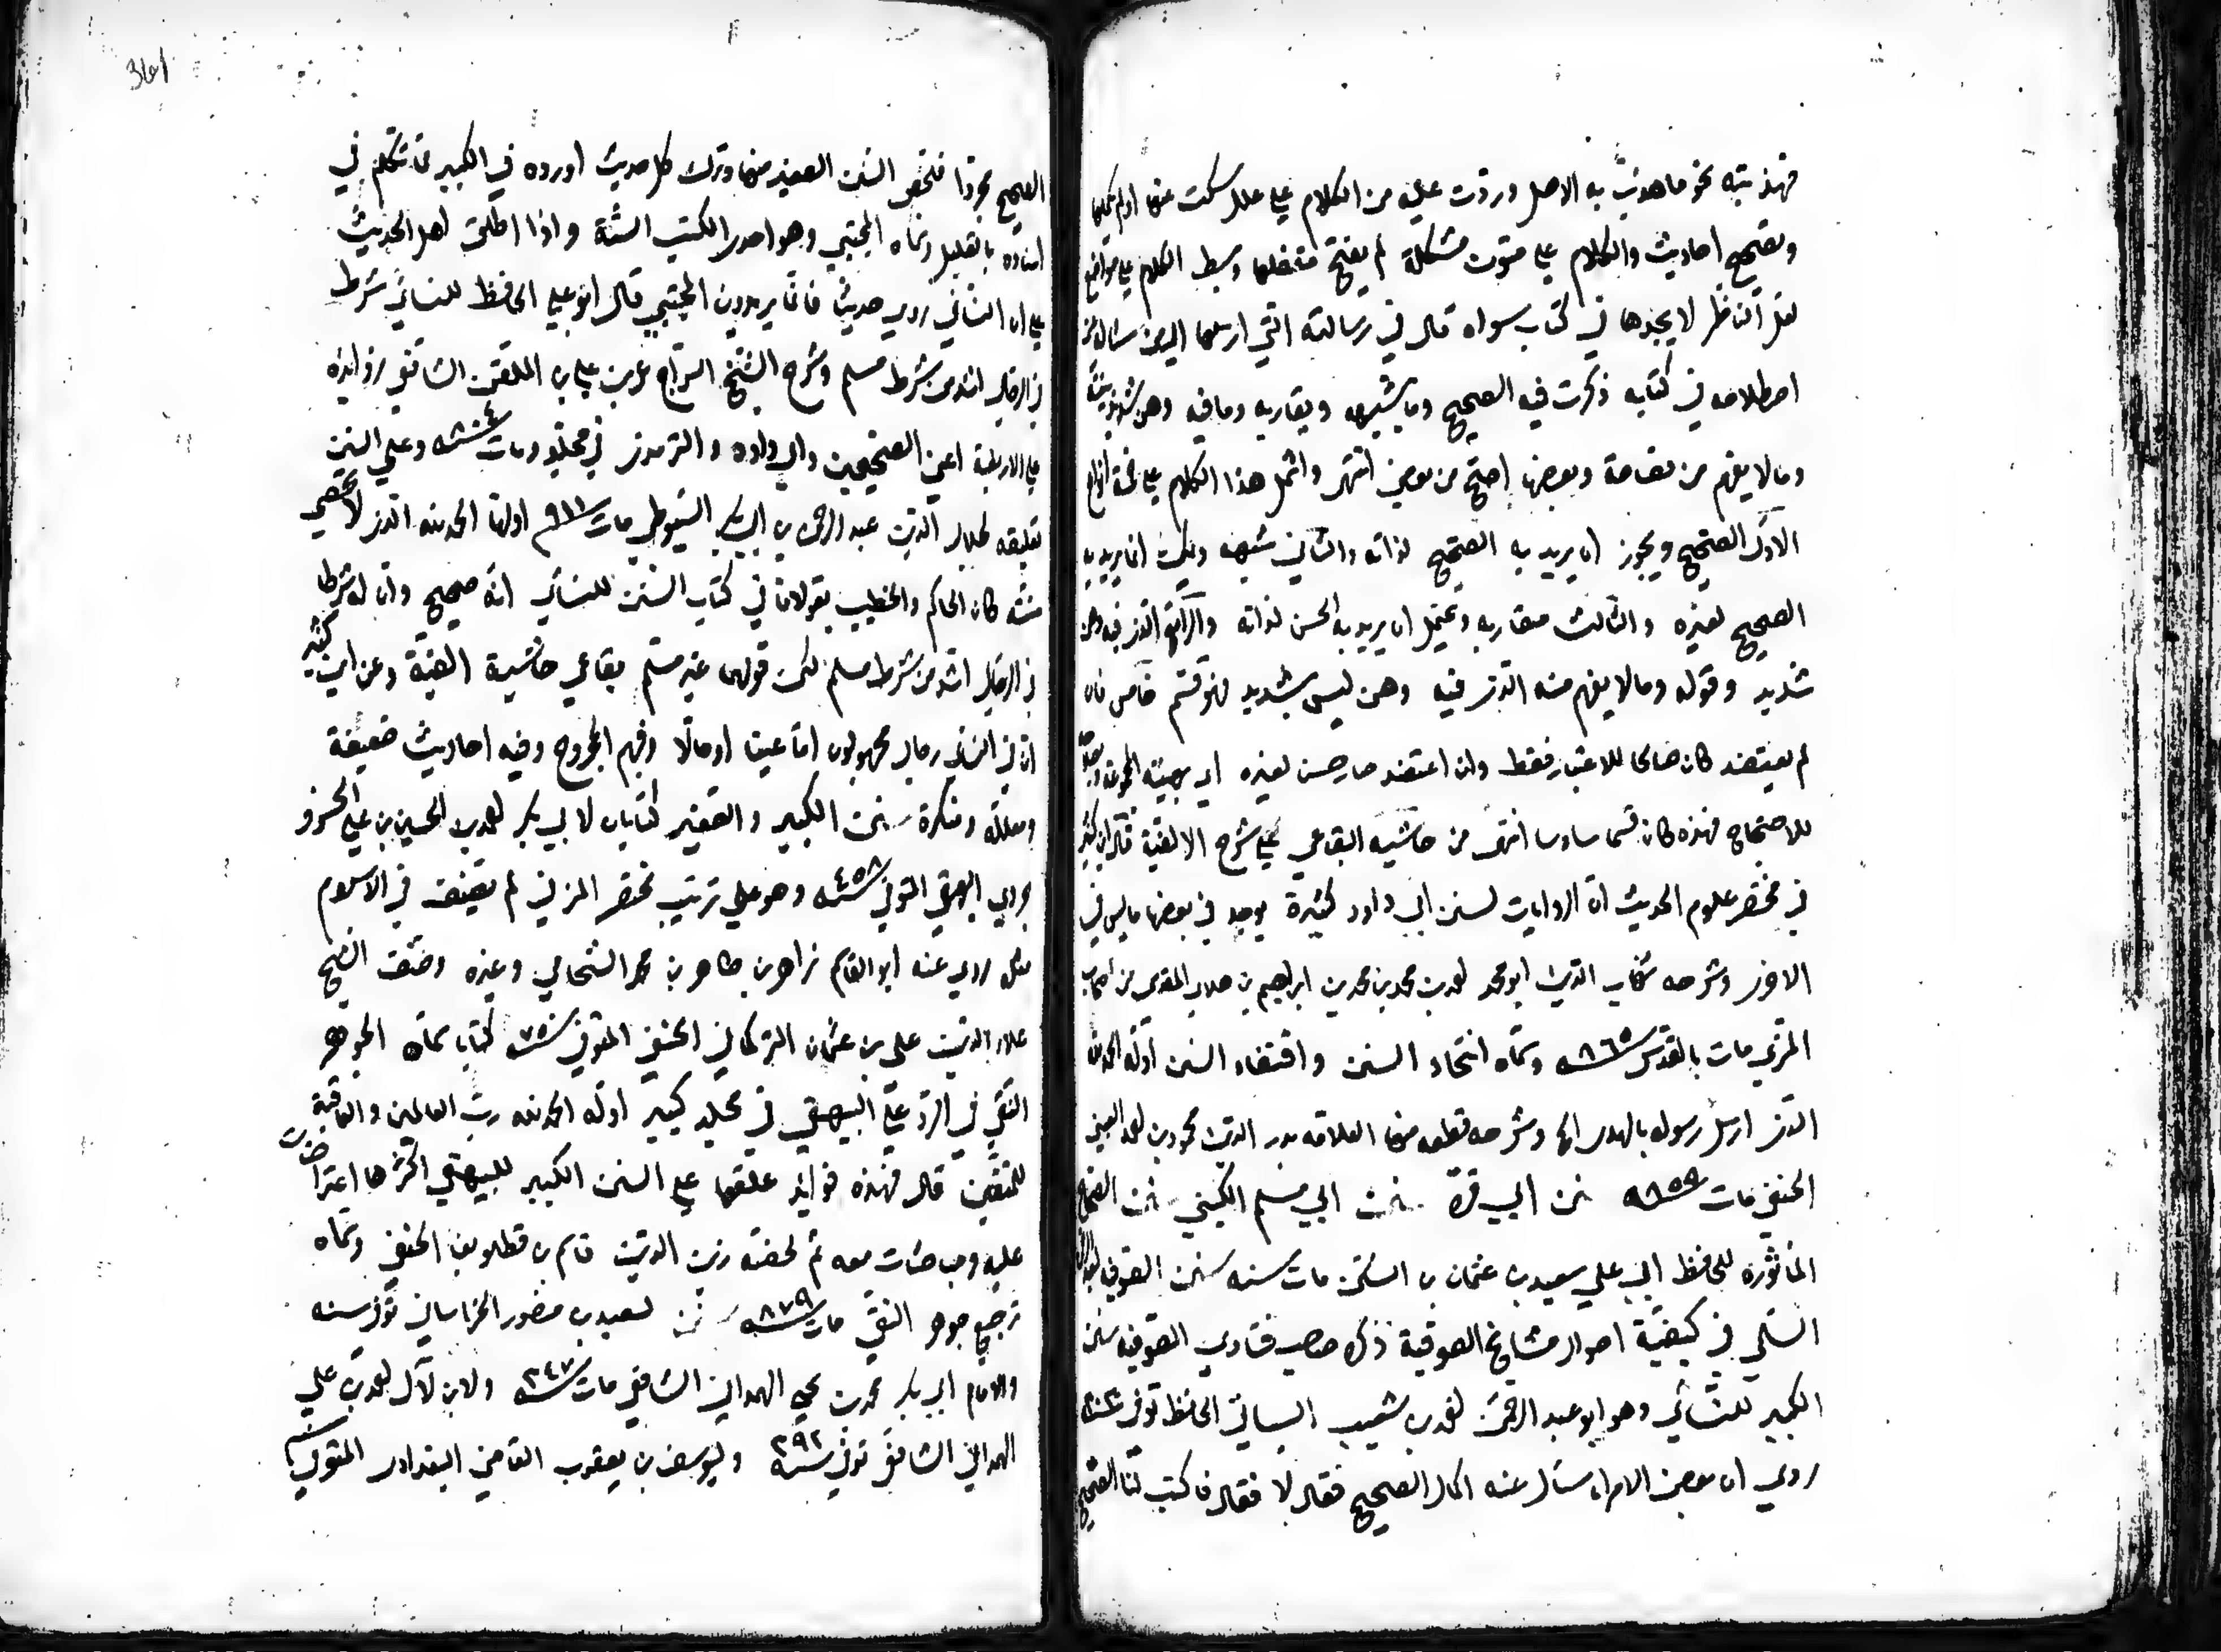 فهذبته نحو ما هذب به الاصل وردت عليه من الكلام علي علل سكت عنها اولم يكملها
وتصحيح احاديث والكلام علي متون مشكلة لم يفتح مقفلها وبسط الكلام علي مواضع
لعل الناظر لا يجدها في كتاب سواه قال في رسالته التي ارسلها الي من سأله عن
اصطلاحه في كتابه ذكرت فيه الصحيح وما يشبهه ويقاربه وما فيه وهن شديد بينته
وما لا يفهم منه وبعضها اصح من بعض انتهى واشتمل هذا الكلام علي خمسة انواع
الاول الصحيح ويجوز ان يريد به الصحيح لذاته والثاني شبهه ويمكن ان يريد به
الصحيح لغيره والثالث مقاربه ويحتمل ان يريد به الحسن لذاته والرابع الذي فيه وهن
شديد وقوله وما لا يفهم منه الذي فيه وهن ليس بشديد فهو قسم خامس فان
لم يعتضد كان صالحا للاعتبار فقط وان اعتضد صار حسن لغيره اي بهيئة المجموعة وصلح
للاحتجاج فهذه كان قسما سادسا انتهى من حاشية البقاعي علي شرح الالفية قال ابن كثير
في مختصر علوم الحديث ان الروايات لسنن ابي داود كثيرة يوجد في بعضها ما ليس في
الاخرى وشرحه شهاب الدين ابو محمد احمد بن محمد بن محمد بن ابراهيم بن هلال المقدسي من اصحاب
المزي مات بالقدس سنه ٨٦٥ وسماه انتحاء السنن واقتفاء السنن اوله الحمد لله
الذي ارسل رسوله بالهدى الخ وشرحه قطعه منها العلامه بدر الدين محمود بن احمد العيني
الحنفي مات سنه ٨٥٥ سنن ابي قرة سنن ابي مسلم الكشي سنن الصحاح
المأثوره للحافظ ابي علي سعيد بن عثمان بن السكن مات سنه سنن الصوفيه
السلمي في كيفية احوال مشايخ الصوفية ذكره صاحب فتاوي الصوفيه سنن
الكبير للنسائي وهو ابو عبد الرحمن احمد بن شعيب النسائي الحافظ توفي سنه
روي ان بعض الامراء سأل عنه اكمال الصحيح فقال لا فقال فاكتب لنا الصحيح
الصحيح مجردا فلخص السنن الصغير منها وترك كل حديث اورده في الكبير مما تكلم في
اسناده بالتعليل وسماه المجتبي وهو احد الكتب الستة واذا اطلق اهل الحديث
علي ان النسائي روي حديثا فانما يريدون المجتبي قال ابو علي الحافظ للنسائي شرط
في الرجال اشد من شرط مسلم وشرح الشيخ السراج عمر بن علي بن الملقن الشافعي زوائده
علي الاربعة اعني الصحيحين وابي داود والترمذي في مجلد ومات سنه ٨٠٤ وعلي السنن
تعليقه لجلال الدين عبد الرحمن بن ابي بكر السيوطي مات سنه ٩١١ اولها الحمد لله الذي لا تحصي
مننه كان الحاكم والخطيب يقولان في كتاب السنن للنسائي انه صحيح وان له شرطا
في الرجال اشد من شرط مسلم لكن قولهما غير مسلم بقاعي حاشية الفية وعن ابن كثير
ان في النسائي رجال مجهولون اما عينا او حالا وفيهم المجروح وفيه احاديث ضعيفة
ومعللة ومنكرة سنن الكبير والصغير كتابان لابي بكر احمد بن الحسين بن علي الخسرو
جردي البيهقي المتوفي سنه ٤٥٨ وهو علي ترتيب مختصر المزني لم يصنف في الاسلام
مثله روي عنه ابو القاسم زاهر بن طاهر بن محمد الشحامي وغيره وصنف الشيخ
علاء الدين علي بن عثمان التركماني الحنفي المتوفي سنه ٧٥٠ كتابا سماه الجوهر
النقي في الرد علي البيهقي في مجلد كبير اوله الحمد لله رب العالمين والعاقبة
للمتقين قال فهذه فوائد علقتها علي السنن الكبير للبيهقي اكثرها اعتراضات
عليه ومباحثات معه ثم لخصه زين الدين قاسم بن قطلوبغا الحنفي وسماه
ترجيح جوهر النقي مات سنه ٨٧٩ سنن لسعيد بن منصور الخراساني توفي سنه
والامام ابي بكر محمد بن يحيي الهمداني الشافعي مات سنه ٣٤٧ ولابن لال احمد بن علي
الهمداني الشافعي توفي سنه ٣٩٢ وليوسف بن يعقوب القاضي البغدادي المتوفي
361